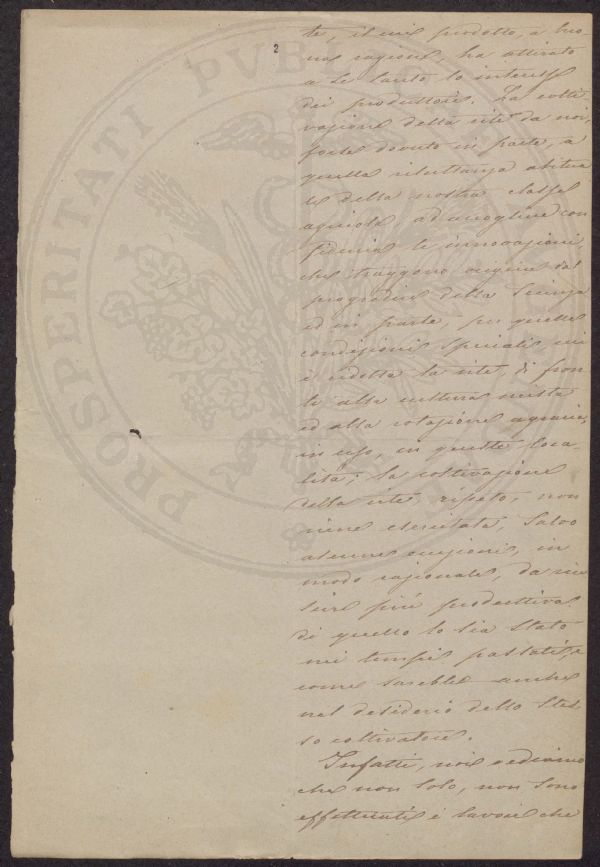 2
te, il cui prodotto, a buo-
na ragione, ha attirato
a se tanto lo interesse
dei produttori. La colti
vazione della vite da noi,
forse dovuto in parte, a
quella riluttanza abitua
le della nostra classe
agricola ad accogliere con
fiducia le innovazioni,
che traggono origine dal
progredire della Scienza
ed in parte, per quelle
condizioni speciali, cui
è ridotta la vite di fron
te alla cultura mista
ed alla rotazione agraria,
in uso, in queste loca-
lità; la coltivazione
della vite, ripeto, non
viene esercitata, salvo
alcune eccezioni, in
modo razionale, da riu
scire più produttiva
di quello lo sia stato
nei tempi passati, e
come sarebbe anche
nel desiderio dello stes
so coltivatore.
Infatti, noi vediamo
che non solo, non sono
effettuati i lavori che
PROSPERITATI PVBLICAE